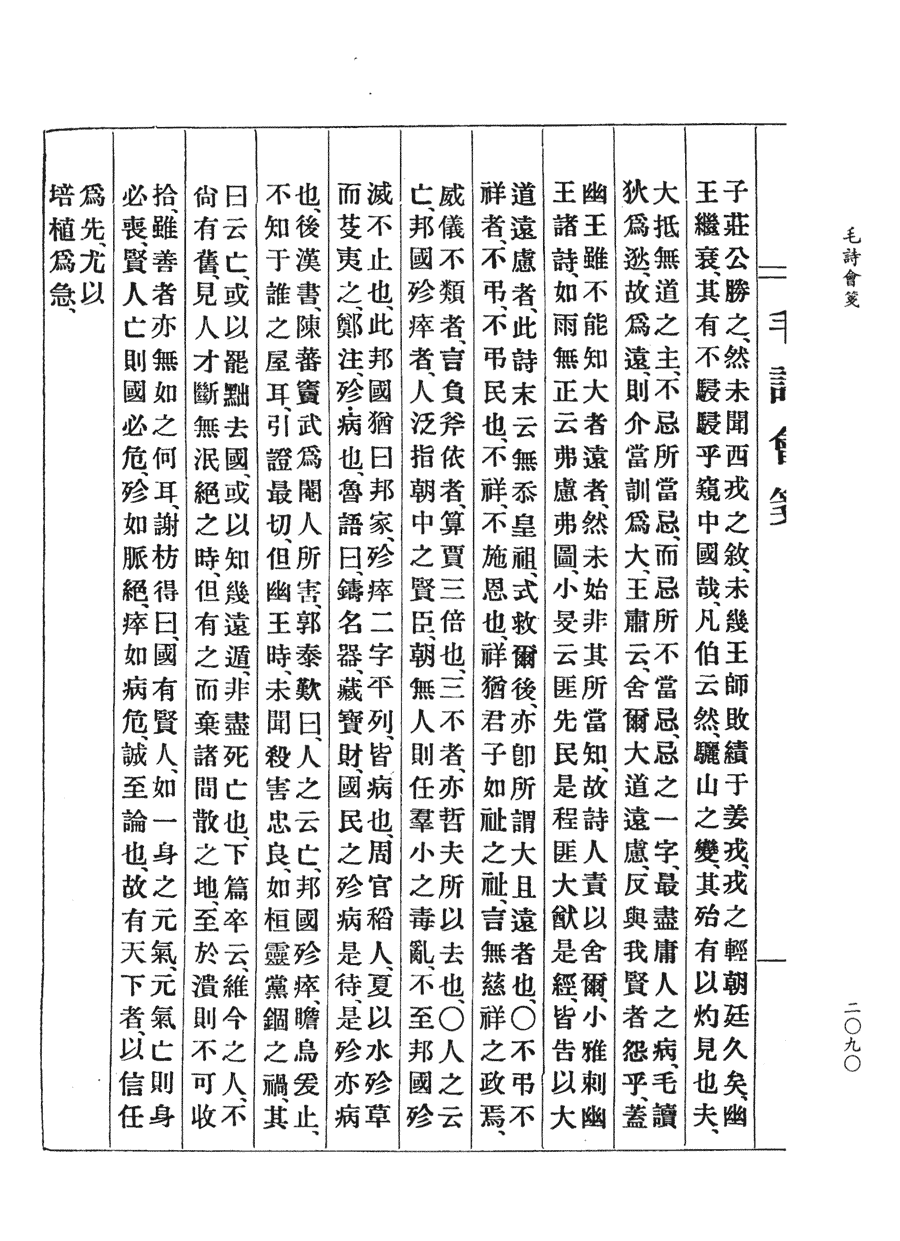 毛詩會箋
二〇九〇
毛詩會箋
子莊公勝之、然未聞西戎之敘、未幾王師敗績于姜戎、戎之輕朝廷久矣、幽
王繼衰、其有不駸駸乎窺中國哉、凡伯云然、驪山之變、其殆有以灼見也夫、
大抵無道之主、不忌所當忌、而忌所不當忌、忌之一字、最盡庸人之病、毛讀
狄爲逖、故爲遠、則介當訓爲大、王肅云、舍爾大道遠慮、反與我賢者怨乎、蓋
幽王雖不能知大者遠者、然未始非其所當知、故詩人責以舍爾、小雅刺幽
王諸詩、如雨無正云弗慮弗圖、小旻云匪先民是程匪大猷是經、皆告以大
道遠慮者、此詩末云無忝皇祖、式救爾後、亦卽所謂大且遠者也、〇不弔不
祥者、不弔、不弔民也、不祥、不施恩也、祥猶君子如祉之祉、言無慈祥之政焉、
威儀不類者、言負斧依者、算賈三倍也、三不者、亦哲夫所以去也、〇人之云
亡、邦國殄瘁者、人泛指朝中之賢臣、朝無人則任羣小之毒亂、不至邦國殄
滅不止也、此邦國猶曰邦家、殄瘁二字平列、皆病也、周官稻人、夏以水殄草
而芟夷之、鄭注、殄、病也、魯語曰、鑄名器、藏寶財、國民之殄病是待、是殄亦病
也、後漢書、陳蕃竇武爲閹人所害、郭泰歎曰、人之云亡、邦國殄瘁、瞻烏爰止、
不知于誰之屋耳、引證最切、但幽王時、未聞殺害忠良、如桓靈黨錮之禍、其
曰云亡、或以罷黜去國、或以知幾遠遁、非盡死亡也、下篇卒云、維今之人、不
尙有舊、見人才斷無泯絕之時、但有之而棄諸閒散之地、至於潰則不可收
拾、雖善者亦無如之何耳、謝枋得曰、國有賢人、如一身之元氣、元氣亡則身
必喪、賢人亡則國必危、殄如脈絕、瘁如病危、誠至論也、故有天下者、以信任
爲先、尤以
培植爲急、